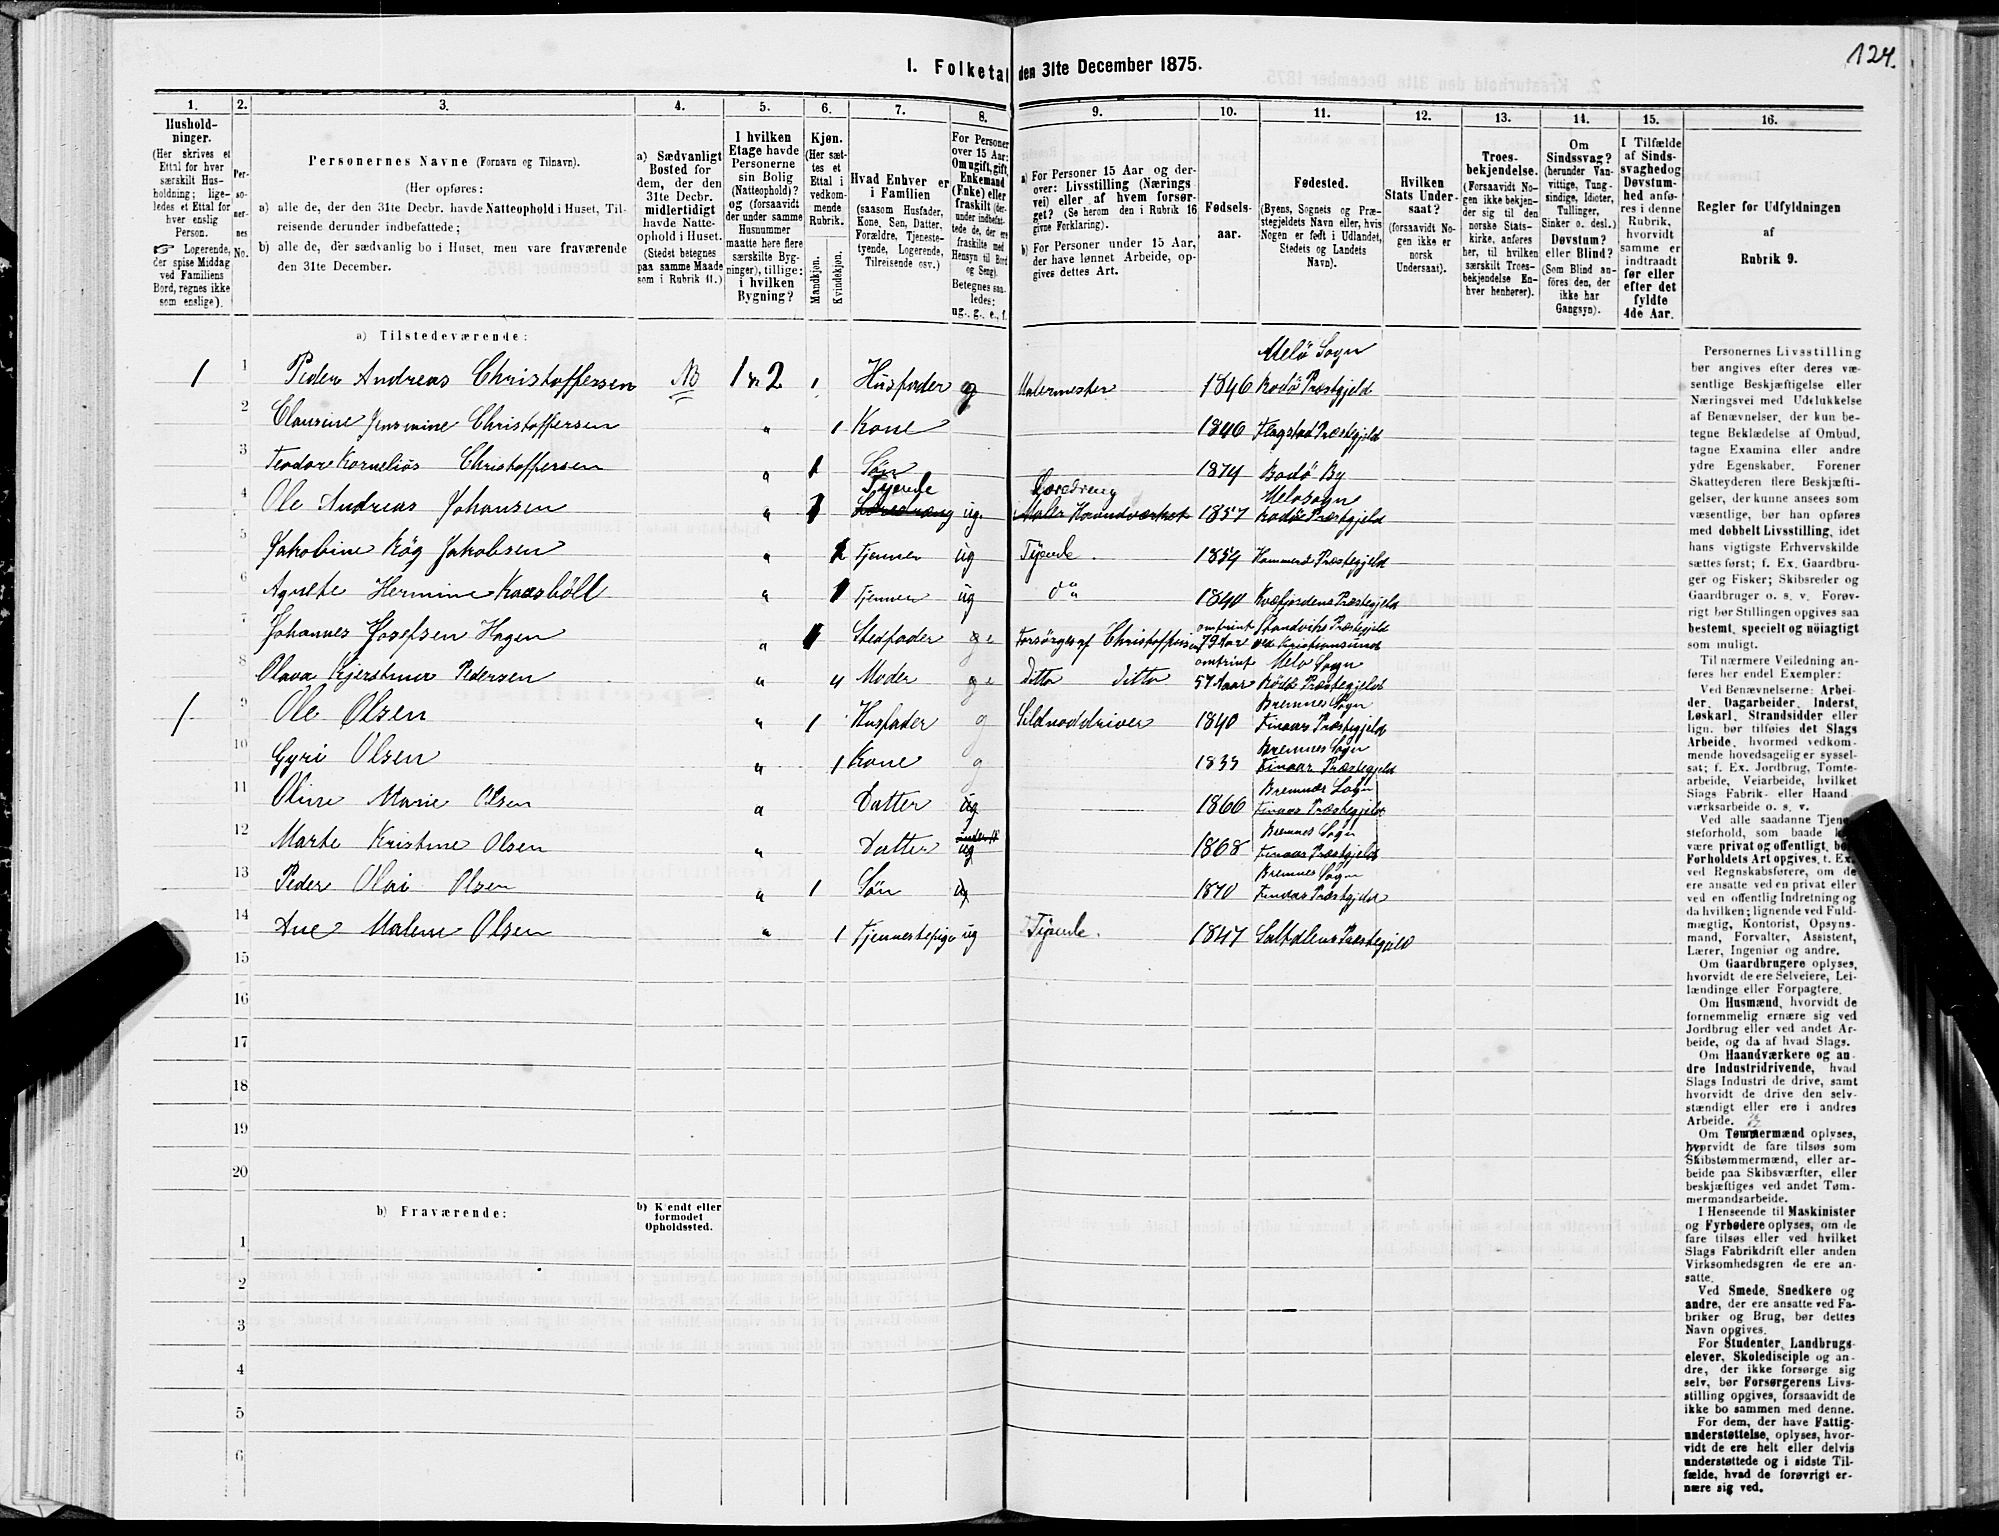 124.
I. Folketal den 31te December 1875.
1. 2. 3. 4. 5. 6. 7. 8. 9. 10. 11. 12. 13. 14. 15. 16.
Hushold-
ninger.
(Her skrives et
Ettal for hver
særskilt Hus-
holdning; lige-
ledes et Ettal for
hver enslig
Person.
☞ Logerende,
der spise Middag
ved Familiens
Bord, regnes ikke
som enslige).
Per-
so-
ner-
nes
No.
Personernes Navne (Fornavn og Tilnavn).
(Her opføres:
a) alle de, der den 31te Decbr. havde Natteophold i Huset, Til-
reisende derunder indbefattede;
b) alle de, der sædvanlig bo i Huset, men vare fraværende
den 31te December.
a) Sædvanligt
Bosted for
dem, der den
31te Decbr.
midlertidigt
havde Natte-
ophold i Huset.
(Stedet betegnes
paa samme Maade
som i Rubrik 11.)
I hvilken
Etage havde
Personerne
sin Bolig
(Natteophold)?
og (forsaavidt
der under samme
Husnummer
maatte høre flere
særskilte Byg-
ninger), tillige:
i hvilken
Bygning?
Kjøn.
(Her sæt-
tes et
Ettal i
vedkom-
mende
Rubrik.
Mandkjøn.
Kvindekjøn.
Hvad Enhver er
i Familien
(saasom Husfader,
Kone, Søn, Datter,
Forældre, Tjeneste-
tyende, Logerende,
Tilreisende osv.)
For Personer
over 15 Aar:
Om ugift, gift,
Enkemand
(Enke) eller
fraskilt (der-
under indbefat-
tede de, der ere
fraskilte med
Hensyn til Bord
og Seng).
Betegnes saa-
ledes:
ug., g., e., f.
a) For Personer 15 Aar og der-
over: Livsstilling (Nærings
vei) eller af hvem forsør-
get? (Se herom den i Rubrik 16
givne Forklaring).
b) For Personer under 15 Aar,
der have lønnet Arbeide, op-
gives dettes Art.
Fødsels-
aar.
Fødested.
(Byens, Sognets og Præ-
stegjeldets Navn eller, hvis
Nogen er født i Udlandet,
Stedets og Landets
Navn).
Hvilken
Stats Under-
saat?
(forsaavidt No-
gen ikke er
norsk
Undersaat).
Troes-
bekjendelse.
(Forsaavidt No-
gen ikke bekjen-
der sig til den
norske Stats-
kirke, anføres
her, til hvilken
særskilt Troes-
bekjendelse En-
hver henhører).
Om
Sindssvag?
(herunder Van-
vittige, Tung-
sindige, Idioter,
Tullinger,
Sinker o. desl.)
Døvstum?
eller Blind?
(Som Blind an-
føres den, der
ikke har
Gangsyn).
I Tilfælde
af Sinds-
svaghed og
Døvstum-
hed anfø-
res i denne
Rubrik,
hvorvidt
samme er
indtraadt
før eller
efter det
fyldte
4de Aar.
Regler for Udfyldningen
af
Rubrik 9.
a) Tilstedeværende:
Melö Sogn
1 1 Peder Andreas Christoffersen NB 1 & 2 1 Husfader g Malermester 1846 Rodö Præstgjeld
2 Clausine Jensmine Christoffersen " 1 Kone 1846 Flagstad Præstegjeld
3 Teodor Kornelius Christoffersen " 1 Søn 1874 Bodö By
Tjende Læredreng Melö sogn
4 Ole Andreas Johansen " 1 Læredræng ug. Maler Haandværket 1857 Rodö Præstgjeld
5 Jakobine Røg Jakobsen " 1 Tjenner ug Tjende. 1854 Hammerö Præstegjeld
6 Agnete Hermine Kaasböll " 1 Tjenner ug d° " 1840 Kvæfjordens Præstegjeld
omtrint Strandviks Præstegjeld
7 Johannes Josefsen Hagen " 1 Stedfader g Forsörges af Christoffersen 79 Aar ved Kristiansund
omtrint Melö Sogn
8 Olava Kjerstina Pedersen " " Moder g Ditto Ditto 57 Aar Rödö Præstegjeld
Bremnes Sogn
1 9 Ole Olsen " 1 Husfader g Sildnoddriver 1840 Finaas Præstegjeld
Bremnes Sogn
10 Gyri Olsen " 1 Kone g 1833 Finaas Præstegjeld
Bremnes Sogn
11 Oline Marie Olsen " Datter ug 1866 Finaas Præstegjeld
Bremnes Sogn
12 Marte Kristine Olsen " Datter ug 1868 Finaas Præstgjeld
Bremnes Sogn
13 Peder Olai Olsen " 1 Søn ug 1870 Findas Præstgjeld
14 Ane Malene Olsen " 1 Tjennestepige ug Tjende. 1847 Saltdalens Præstegjeld
15
16
17
18
19
20
b) Fraværende:
b) Kjendt eller
formodet
Opholdssted.
1
2
3
4
5
6
Personernes Livsstilling
bør angives efter deres væ-
sentlige Beskjæftigelse eller
Næringsvei med Udelukkelse
af Benævnelser, der kun be-
tegne Beklædelse af Ombud,
tagne Examina eller andre
ydre Egenskaber. Forener
Skatteyderen flere Beskjæfti-
gelser, der kunne ansees som
væsentlige, bør han opføres
med dobbelt Livsstilling, idet
hans vigtigste Erhvervskilde
sættes først; f. Ex. Gaardbru-
ger og Fisker; Skibsreder og
Gaardbruger o. s. v. Forøv-
rigt bør Stillingen opgives saa
bestemt, specielt og nöiagtigt
som muligt.
Til nærmere Veiledning an-
føres her endel Exempler:
Ved Benævnelserne: Arbei-
der, Dagarbeider, Inderst,
Løskarl, Strandsidder eller
lign. bør tilføies det Slags
Arbeide, hvormed vedkom-
mende hovedsagelig er syssel-
sat; f. Ex. Jordbrug, Tomte-
arbeide, Veiarbeide, hvilket
Slags Fabrik- eller Haand
værksarbeide o. s. v.
Ved alle saadanne Tjene-
steforhold, som baade k
være privat og offentligt, bø
Forholdets Art opgives, t. Ex.
ved Regnskabsførere, om de
ere ansatte ved en privat eller
ved en offentlig Indretning og
da hvilken; lignende ved Fuld-
mægtig, Kontorist, Opsyns-
mand, Forvalter, Assistent,
Lærer, Ingeniør og andre.
Om Gaardbrugere oplyses,
hvorvidt de ere Selveiere, Lei-
lændinge eller Forpagtere.
Om Husmænd, hvorvidt de
fornemmelig ernære sig ved
Jordbrug eller ved andet Ar-
beide, og da af hvad Slags.
Om Haandværkere og an-
dre Industridrivende, hvad
Slags Industri de drive, samt
hvorvidt de drive den selv-
stændigt eller ere i andres
Arbeide.
Om Tømmermænd oplyses,
hvorvidt de fare tilsøs som
Skibstømmermænd, eller ar-
beide paa Skibsværfter, eller
beskjæftiges ved andet Tøm-
mermandsarbeide.
I Henseende til Maskinister
og Fyrbødere oplyses, om de
fare tilsøs eller ved hvilket
Slags Fabrikdrift eller anden
Virksomhedsgren de ere an-
satte.
Ved Smede, Snedkere og
andre, der ere ansatte ved Fa-
briker og Brug, bør dettes
Navn opgives.
For Studenter, Landbrugs-
elever, Skoledisciple og an-
dre, der ikke forsørge sig
selv, bør Forsørgerens Livs-
stilling opgives, forsaavidt de
ikke bo sammen med denne.
For dem, der have Fattig-
understøttelse, oplyses, hvor-
vidt de ere helt eller delvis
understøttede og i sidste Til-
fælde, hvad de forøvrigt er-
nære sig ved.